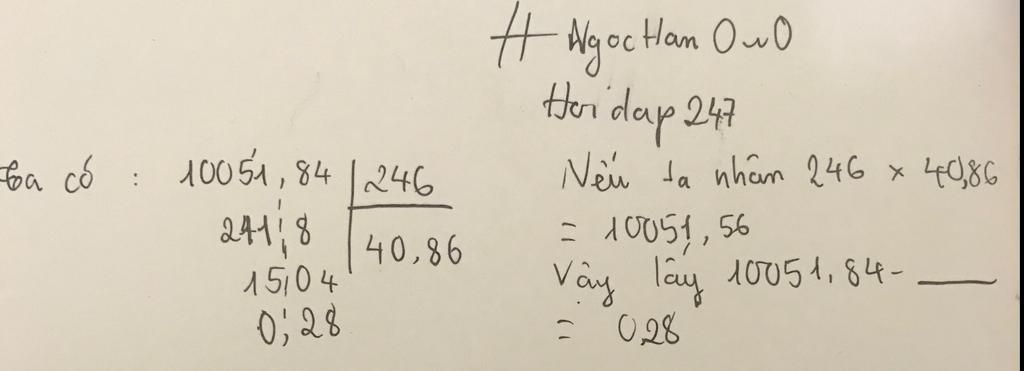 # NgocHan OωO
Hoidap247
Ta có : 10051,84 246
241,8 40,86
15,04
0,28
Nếu ta nhân 246 × 40,86
= 10051,56
Vậy lấy 10051,84 - ____
= 0,28